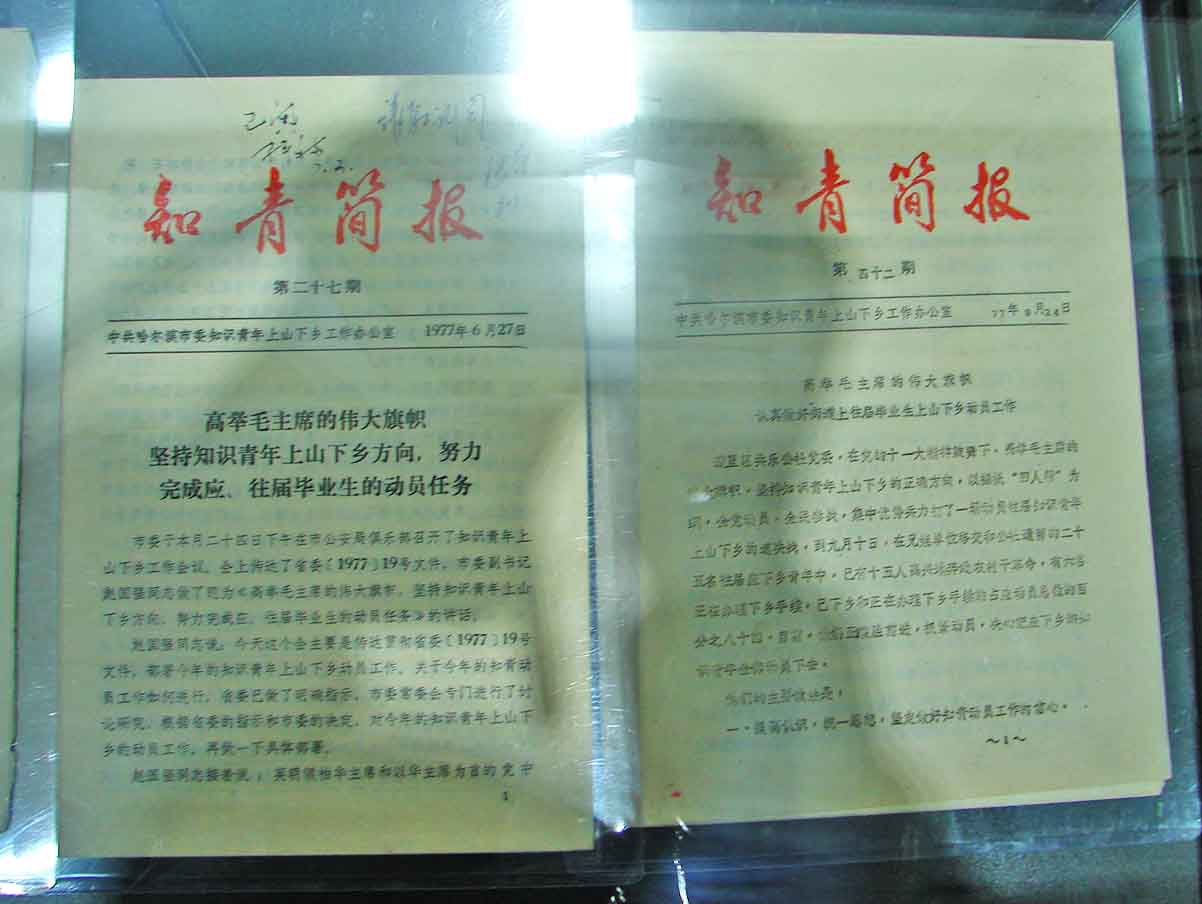 已阅
知青简报
第二十七期
中共哈尔滨市委知识青年上山下乡工作办公室 1977年6月27日
高举毛主席的伟大旗帜
坚持知识青年上山下乡方向，努力
完成应、往届毕业生的动员任务
市委于本月二十四日下午在市公安局俱乐部召开了知识青年上
山下乡工作会议。会上传达了省委〔1977〕19号文件。市委副书记
赵国强同志做了题为《高举毛主席的伟大旗帜，坚持知识青年上山
下乡方向，努力完成应、往届毕业生的动员任务》的讲话。
赵国强同志说：今天这个会主要是传达贯彻省委〔1977〕19号
文件，部署今年的知识青年上山下乡动员工作。关于今年的知青动
员工作如何进行，省委已做了明确指示，市委常委会专门进行了讨
论研究。根据省委的指示和市委的决定，对今年的知识青年上山下
乡的动员工作，再做一下具体部署。
赵国强同志接着说：英明领袖华主席和以华主席为首的党中
1
知青简报
第四十二期
中共哈尔滨市委知识青年上山下乡工作办公室 77年9月24日
高举毛主席的伟大旗帜
认真做好街道上往届毕业生上山下乡动员工作
共乐公社党委，在党的十一大精神鼓舞下，高举毛主席的
伟大旗帜，坚持知识青年上山下乡的正确方向，以揭批“四人帮”为
纲，全党动员，全民参战，集中优势兵力打了一场动员往届知识青年
上山下乡的速决战，到九月十日，在系统单位移交和公社遗留的二十
五名往届应下乡青年中，已有十五人高兴地奔赴农村干革命，有六名
正在办理下乡手续，已下乡和正在办理下乡手续的占应动员总数的百
分之八十四。目前，他们正乘胜前进，抓紧动员，决心把应下乡的知
识青年全部动员下去。
他们的主要做法是：
一、提高认识，统一思想，坚定做好知青动员工作的信心。
～1～